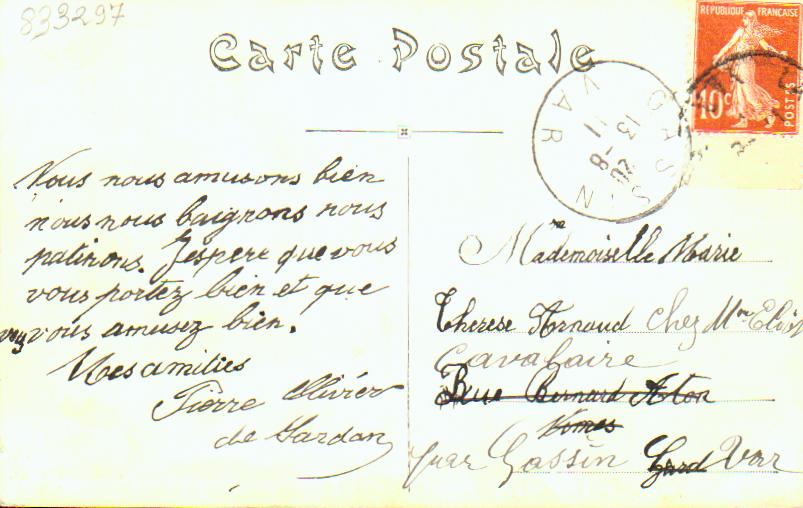 833297
Carte Postale
RÉPUBLIQUE FRANÇAISE
10c
POSTES
GASSIN
VAR
13
11
-8
Nous nous amusons bien
nous nous baignons nous
patinons. J'espere que vous
vous portez bien et que
vous vous amusez bien.
Mes amitiés
Pierre Olivier
de Sardan
Mademoiselle Marie
Therese Arnaud chez Mme
Cavalaire
Rue Bernard Aton
Nimes
par Gassin Gard Var